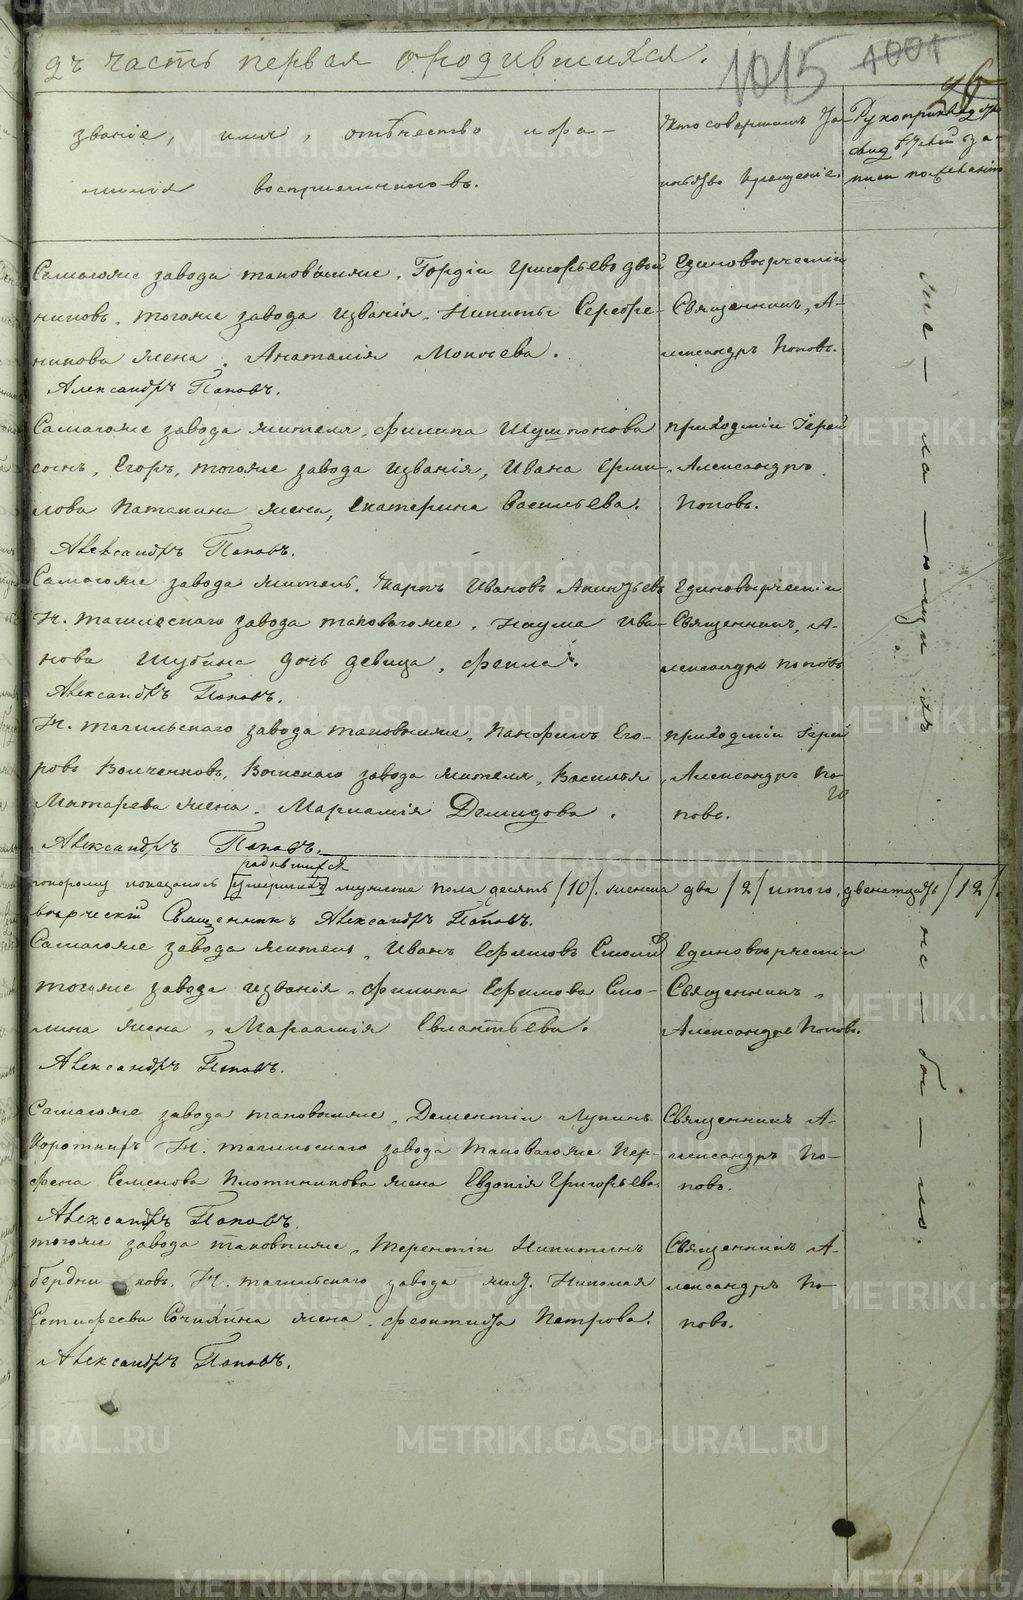 дъ часть первая о родившихся.
1015 1001
26
званіе, имя, отчество и фа-
милія воспріемниковъ.
Кто совершалъ Та
инство крещеніе.
Рукоприкладство
свид
писи по желанію
Самагоже завода таковыеже, Гордіи Григорьевъ Двой
никовъ, тогоже завода и званія, Никиты Серебре-
никова жена, Анатолія Мокиева.
Александръ Поповъ.
Единоверческіи
Священникъ, А-
лександръ Поповъ.
Самагоже завода жителя, Филипа Шушпонова
сынъ, Егоръ, тогоже завода и званія, Ивана Ерми-
лова Патапина жена, Екатерина Васильева.
Александръ Поповъ.
приходскіи Іерей
Александръ
Поповъ.
Самагоже завода житель, Карпъ Ивановъ
Н. тагилескаго завода таковагоже, Наума Ива-
нова Шубина дочь девица, Фекла.
Александръ Поповъ.
Единоверческіи
Священникъ, А-
лександръ Поповъ
Н. тагильскаго завода таковыеже, Панфилъ Его-
ровъ завода жителя, Василья
жена, Маріамія Демидова.
Александръ Поповъ.
приходскіи Іерей
Александръ По
повъ.
родившихся
которому показалось умершихъ мужеска пола десять /10/. женска два /2/ итого, двенатцать /12/.
верческій Священникъ Александръ Поповъ.
Самагоже завода житель, Иванъ Ефимовъ
тогоже завода и званія, Филипа Ефимова Смо-
лина жена, Маріамія Евлантьева.
Александръ Поповъ.
Единоверческіи
Священникъ,
Александръ Поповъ.
Самагоже завода таковыеже, Дементіи Лупинъ
Короткихъ Н. тагильскаго завода таковагоже Пер-
фена Семенова Плотникова жена Евдокія Григорьева.
Александръ Поповъ.
Священникъ А-
лександръ По-
повъ.
тогоже завода таковыеже, Терентіи Никитинъ
Бердниковъ. Н. тагильскаго завода жит. Николая
жена, Феоктиста Петрова.
Александръ Поповъ.
Священникъ А-
лександръ По-
повъ.
же — ла — ющи — хъ
не — бы — ло.
METRIKI.GASO-URAL.RU